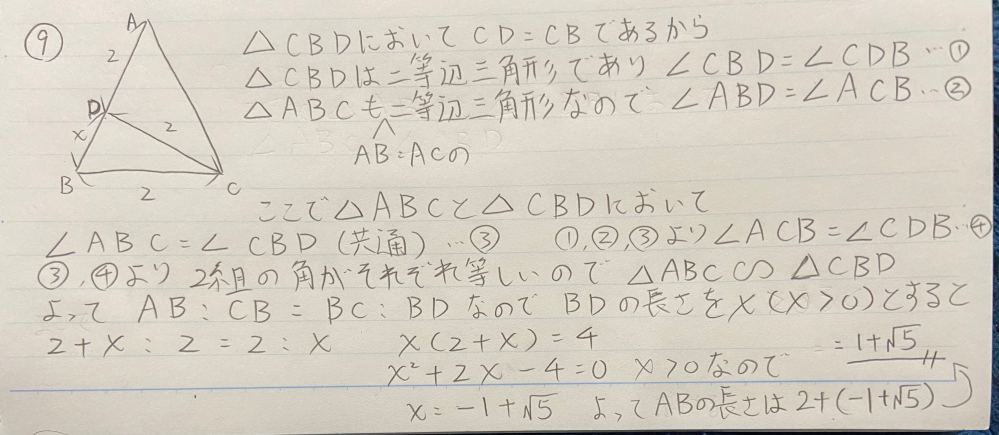 ⑨
A
2
D
x
2
B
2
C
△CBDにおいてCD=CBであるから
△CBDは二等辺三角形であり ∠CBD=∠CDB…①
△ABCも二等辺三角形なので ∠ABD=∠ACB…②
AB=ACの
ここで△ABCと△CBDにおいて
∠ABC=∠CBD(共通)…③ ①,②,③より∠ACB=∠CDB…④
③,④より 2組の角がそれぞれ等しいので △ABC∽△CBD
よって AB:CB=BC:BDなので BDの長さをx(x>0)とすると
2+x:2=2:x x(2+x)=4
x²+2x-4=0 x>0なので
x=-1+√5 よってABの長さは2+(-1+√5)
=1+√5